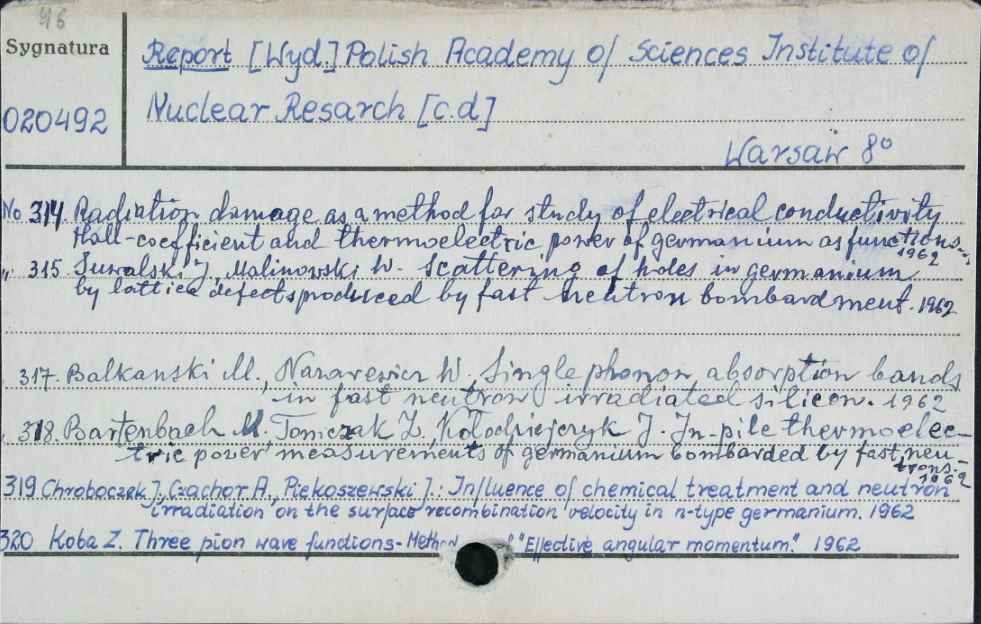 46
Sygnatura
020492
Report [Wyd.] Polish Academy of Sciences Institute of
Nuclear Resarch [c.d]
Warsaw 8°
No 314. Radiation damage as a method for study of electrical conductivity
Hall-coefficient and thermoelectric power of germanium as functions
1962
„ 315. Suwalski J., Malinowski W. Scattering of holes in germanium
by lattice defects produced by fast neutron bombardment. 1962
„ 317. Balkanski M., Nazarewicz W. Single phonon absorption bands
in fast neutron irradiated silicon. 1962
„ 318. Bartenbach M. Tomczak Z., Kołodziejczyk J. In-pile thermoelec-
tric power measurements of germanium bombarded by fast neu-
trons.
1962
319 Chroboczek J., Czachor A., Piekoszewski J.: Influence of chemical treatment and neutron
irradiation on the surface recombination velocity in n-type germanium. 1962
320 Koba Z. Three pion wave functions - "Effective angular momentum." 1962